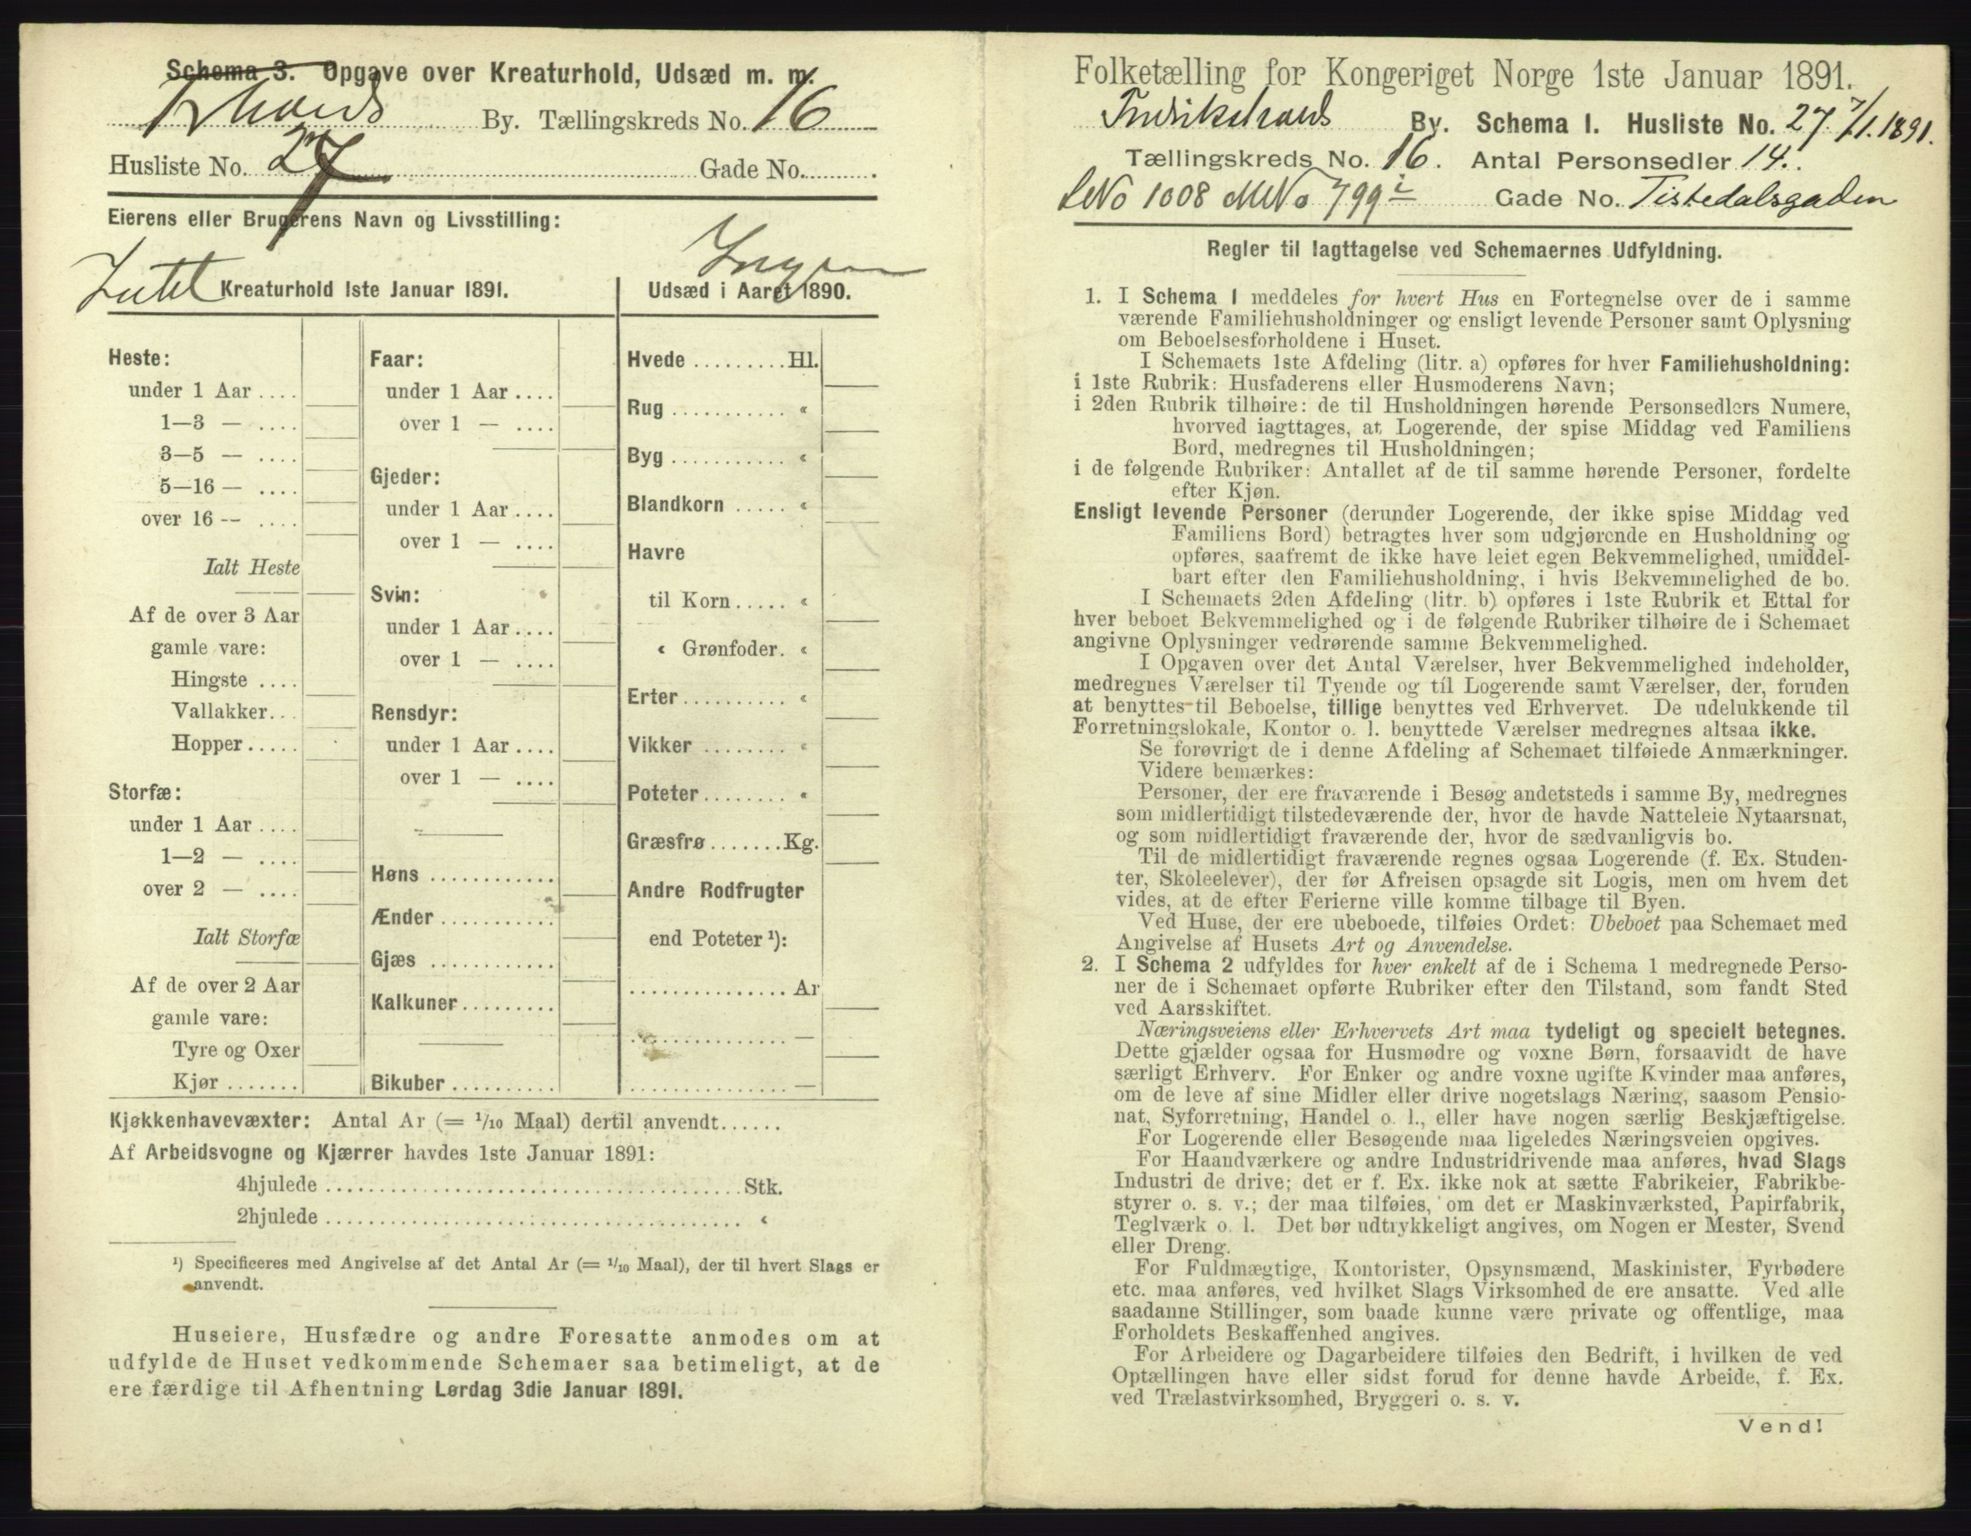 Schema 3. Opgave over Kreaturhold, Udsæd m. m.
Fr.hald By. Tællingskreds No. 16
Husliste No. 27 Gade No.
Eierens eller Brugerens Navn og Livsstilling:
Intet Kreaturhold 1ste Januar 1891.
Ingen Udsæd i Aaret 1890.
Heste:
under 1 Aar ....
1—3 — ....
3—5 — ....
5—16 — ....
over 16 — ....
Ialt Heste
Af de over 3 Aar
gamle vare:
Hingste ....
Vallakker...
Hopper.....
Storfæ:
under 1 Aar ....
1—2 — ....
over 2 — ....
Ialt Storfæ
Af de over 2 Aar
gamle vare:
Tyre og Oxer
Kjør .......
Faar:
under 1 Aar ....
over 1 — ....
Gjeder:
under 1 Aar ....
over 1 — ....
Svin:
under 1 Aar ....
over 1 — ....
Rensdyr:
under 1 Aar ....
over 1 — ....
Høns ............
Ænder ...........
Gjæs ............
Kalkuner.........
Bikuber ..........
Hvede .........Hl.
Rug ........... «
Byg ........... «
Blandkorn ..... «
Havre
til Korn ..... «
« Grønfoder. «
Erter .......... «
Vikker ........ «
Poteter........ «
Græsfrø .......Kg.
Andre Rodfrugter
end Poteter ¹):
............... Ar
............... —
............... —
Kjøkkenhavevæxter: Antal Ar (= 1/10 Maal) dertil anvendt......
Af Arbeidsvogne og Kjærrer havdes 1ste Januar 1891:
4hjulede ........................................Stk.
2hjulede ........................................ «
¹) Specificeres med Angivelse af det Antal Ar (= 1/10 Maal), der til hvert Slags er
anvendt.
Huseiere, Husfædre og andre Foresatte anmodes om at
udfylde de Huset vedkommende Schemaer saa betimeligt, at de
ere færdige til Afhentning Lørdag 3die Januar 1891.
Folketælling for Kongeriget Norge 1ste Januar 1891.
Fredrikshalds By. Schema 1. Husliste No. 27. 7/1. 1891.
Tællingskreds No. 16. Antal Personsedler 14.
LNo 1008 MNo 799 i Gade No. Tistedalsgaden
Regler til Iagttagelse ved Schemaernes Udfyldning.
1. I Schema 1 meddeles for hvert Hus en Fortegnelse over de i samme
værende Familiehusholdninger og ensligt levende Personer samt Oplysning
om Beboelsesforholdene i Huset.
I Schemaets 1ste Afdeling (litr. a) opføres for hver Familiehusholdning:
i 1ste Rubrik: Husfaderens eller Husmoderens Navn;
i 2den Rubrik tilhøire: de til Husholdningen hørende Personsedlers Numere,
hvorved iagttages, at Logerende, der spise Middag ved Familiens
Bord, medregnes til Husholdningen;
i de følgende Rubriker: Antallet af de til samme hørende Personer, fordelte
efter Kjøn.
Ensligt levende Personer (derunder Logerende, der ikke spise Middag ved
Familiens Bord) betragtes hver som udgjørende en Husholdning og
opføres, saafremt de ikke have leiet egen Bekvemmelighed, umiddel-
bart efter den Familiehusholdning, i hvis Bekvemmelighed de bo.
I Schemaets 2den Afdeling (litr. b) opføres i 1ste Rubrik et Ettal for
hver beboet Bekvemmelighed og i de følgende Rubriker tilhøire de i Schemaet
angivne Oplysninger vedrørende samme Bekvemmelighed.
I Opgaven over det Antal Værelser, hver Bekvemmelighed indeholder,
medregnes Værelser til Tyende og til Logerende samt Værelser, der, foruden
at benyttes til Beboelse, tillige benyttes ved Erhvervet. De udelukkende til
Forretningslokale, Kontor o. l. benyttede Værelser medregnes altsaa ikke.
Se forøvrigt de i denne Afdeling af Schemaet tilføiede Anmærkninger.
Videre bemærkes:
Personer, der ere fraværende i Besøg andetsteds i samme By, medregnes
som midlertidigt tilstedeværende der, hvor de havde Natteleie Nytaarsnat,
og som midlertidigt fraværende der, hvor de sædvanligvis bo.
Til de midlertidigt fraværende regnes ogsaa Logerende (f. Ex. Studen-
ter, Skoleelever), der før Afreisen opsagde sit Logis, men om hvem det
vides, at de efter Ferierne ville komme tilbage til Byen.
Ved Huse, der ere ubeboede, tilføies Ordet: Ubeboet paa Schemaet med
Angivelse af Husets Art og Anvendelse.
2. I Schema 2 udfyldes for hver enkelt af de i Schema 1 medregnede Perso-
ner de i Schemaet opførte Rubriker efter den Tilstand, som fandt Sted
ved Aarsskiftet.
Næringsveiens eller Erhvervets Art maa tydeligt og specielt betegnes.
Dette gjælder ogsaa for Husmødre og voxne Børn, forsaavidt de have
særligt Erhverv. For Enker og andre voxne ugifte Kvinder maa anføres,
om de leve af sine Midler eller drive nogetslags Næring, saasom Pensio-
nat, Syforretning, Handel o. l., eller have nogen særlig Beskjæftigelse.
For Logerende eller Besøgende maa ligeledes Næringsveien opgives.
For Haandværkere og andre Industridrivende maa anføres, hvad Slags
Industri de drive; det er f. Ex. ikke nok at sætte Fabrikeier, Fabrikbe-
styrer o. s. v.; der maa tilføies, om det er Maskinværksted, Papirfabrik,
Teglværk o. l. Det bør udtrykkeligt angives, om Nogen er Mester, Svend
eller Dreng.
For Fuldmægtige, Kontorister, Opsynsmænd, Maskinister, Fyrbødere
etc. maa anføres, ved hvilket Slags Virksomhed de ere ansatte. Ved alle
saadanne Stillinger, som baade kunne være private og offentlige, maa
Forholdets Beskaffenhed angives.
For Arbeidere og Dagarbeidere tilføies den Bedrift, i hvilken de ved
Optællingen have eller sidst forud for denne havde Arbeide, f. Ex.
ved Trælastvirksomhed, Bryggeri o. s. v.
Vend!